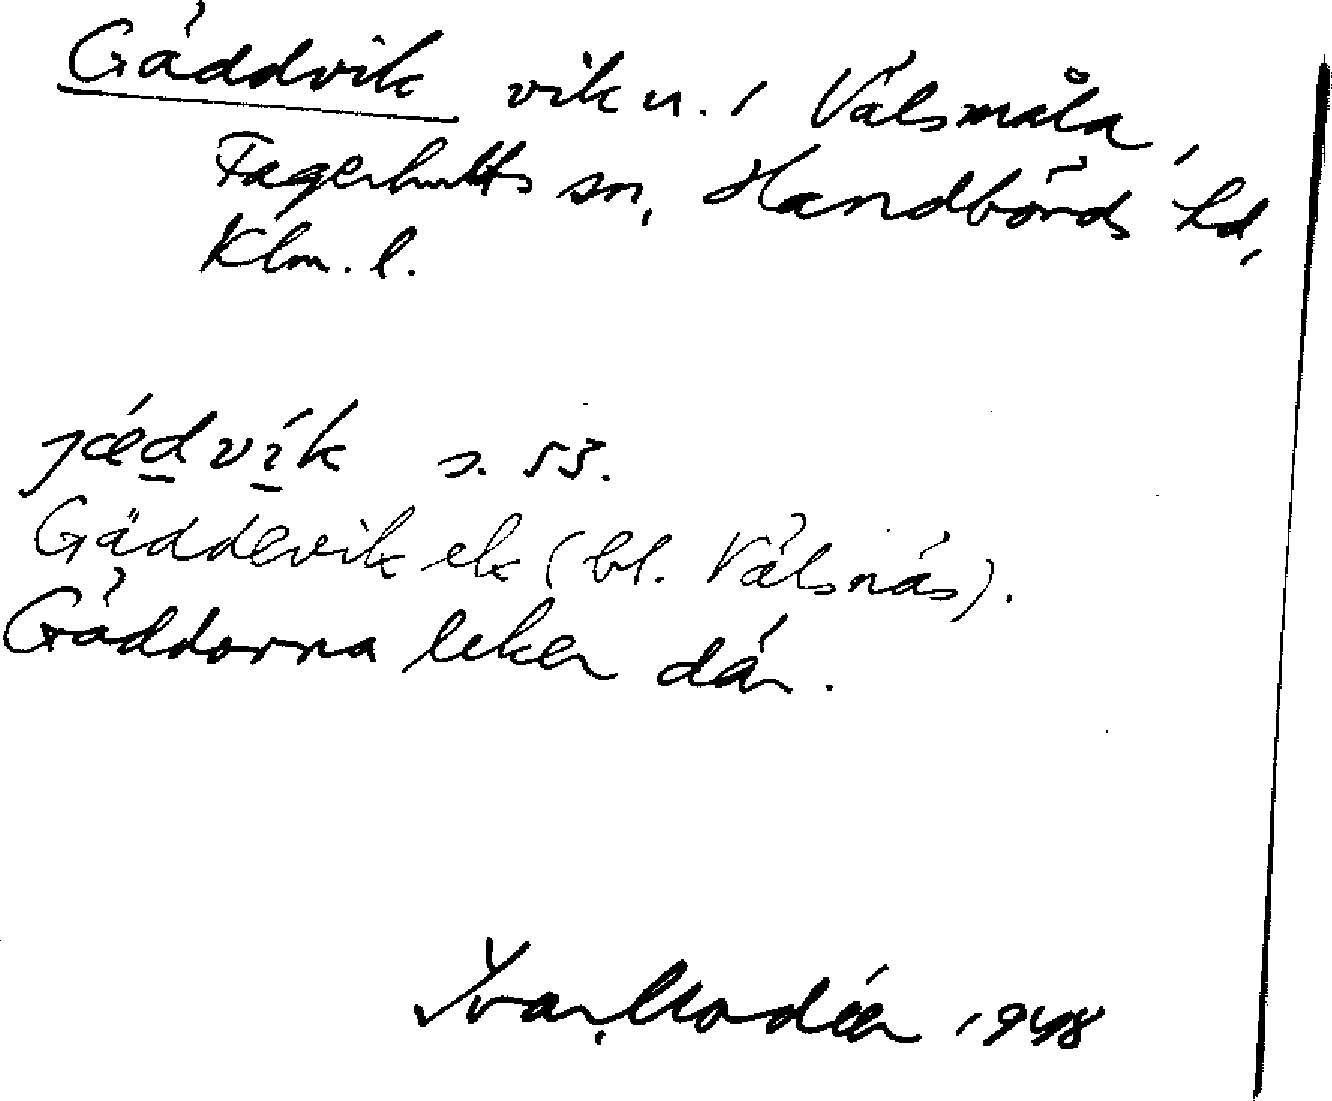 Gäddvik vik n. i Välsmåla,
Fagerhults sn, Handbörds hd,
Klm. l.
jǽdvík s. 53.
Gäddevik ek (bl. Välsnäs).
Gäddorna leker där.
Ivar Modéer 1948